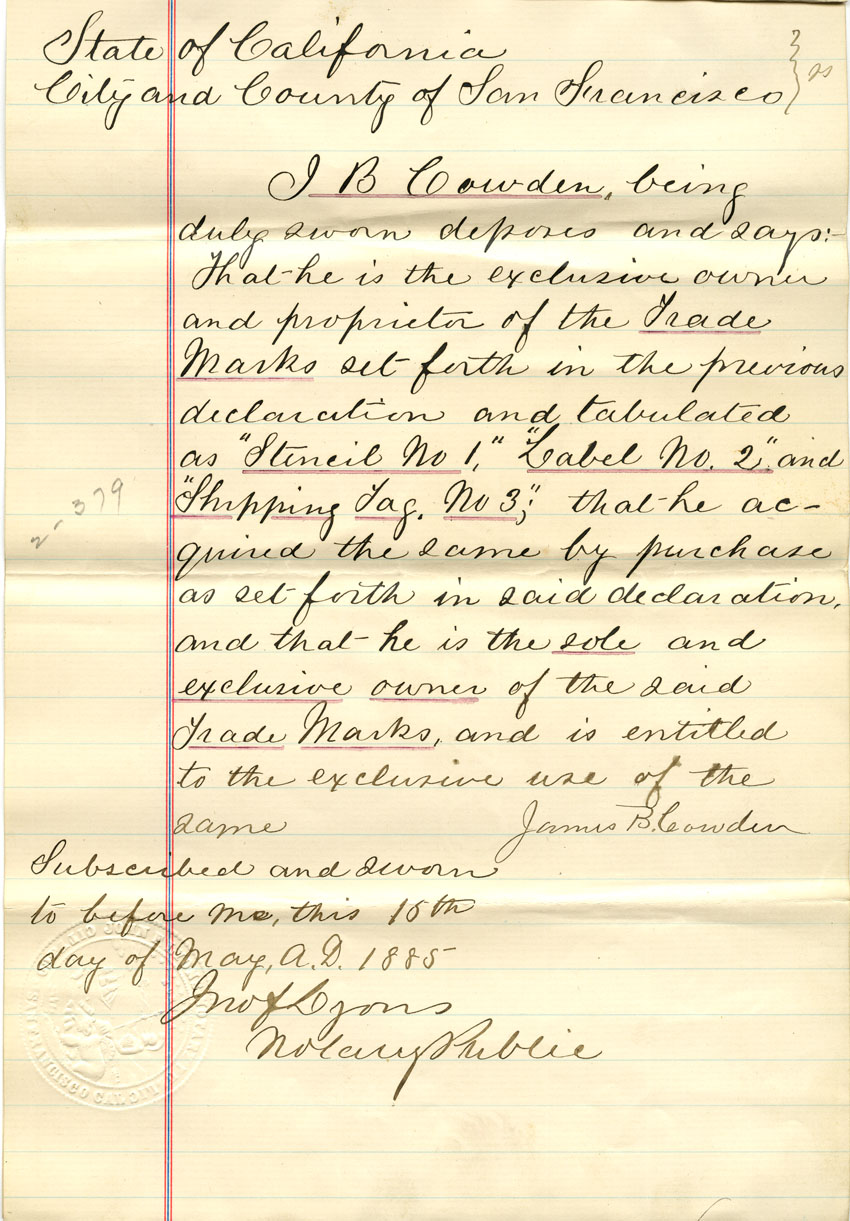 State of California } ss
City and County of San Francisco
J B Cowden, being
duly sworn deposes and says:-
That he is the exclusive owner
and proprietor of the Trade
Marks set forth in the previous
declaration and tabulated
as "Stencil No 1," "Label No. 2" and
"Shipping Tag. No 3"; that he ac-
2-379
quired the same by purchase
as set forth in said declaration,
and that he is the sole and
exclusive owner of the said
Trade Marks, and is entitled
to the exclusive use of the
same
James B. Cowden
Subscribed and sworn
to before me, this 15th
day of May, A.D. 1885
Jno f Lyons
Notary Public